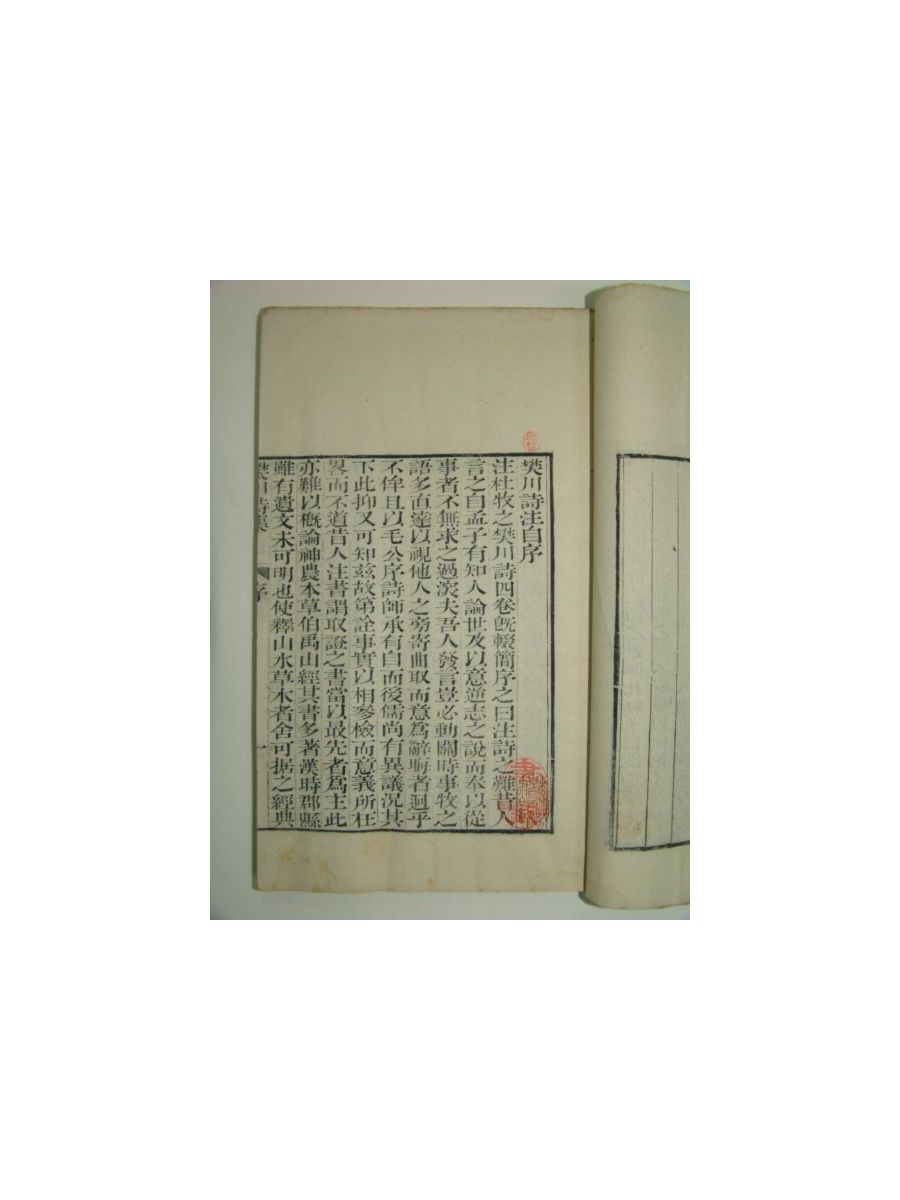 樊川詩注自序
注杜牧之樊川詩四卷旣輟簡序之曰注詩之難昔人
言之自孟子有知人論世及以意逆志之說而奉以從
事者不無求之過深夫吾人發言豈必動關時事牧之
語多直達以視他人之旁寄曲取而意爲辭晦者迥乎
不侔且以毛公序詩師承有自而後儒尚有異議况其
下此抑又可知茲故第詮事實以相參檢而意義所在
畧而不道昔人注書謂取證之書當以最先者爲主此
亦難以槪論神農本草伯禹山經其書多著漢時郡縣
雖有遺文未可明也使釋山水草木者舍可据之經典
樊川詩集
序
一